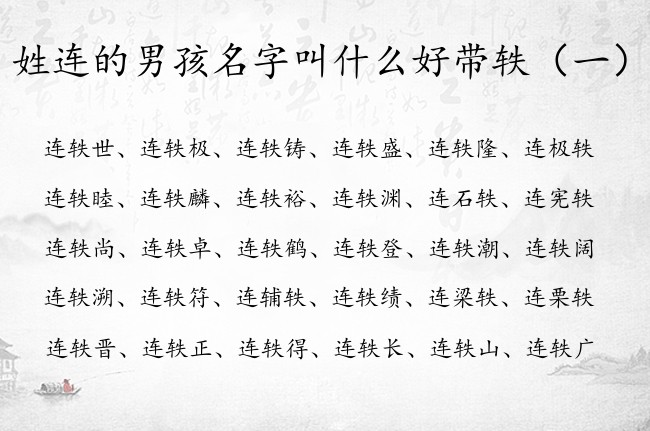 姓连的男孩名字叫什么好带轶（一）
连轶世、连轶极、连轶铸、连轶盛、连轶隆、连极轶
连轶睦、连轶麟、连轶裕、连轶渊、连石轶、连宪轶
连轶尚、连轶卓、连轶鹤、连轶登、连轶潮、连轶阔
连轶溯、连轶符、连辅轶、连轶绩、连梁轶、连栗轶
连轶晋、连轶正、连轶得、连轶长、连轶山、连轶广